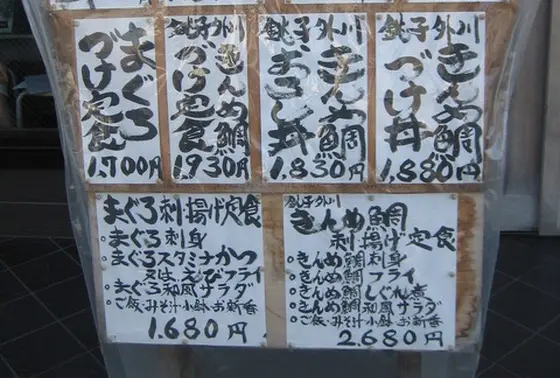 銚子外川
きんめ鯛
づけ丼
1,880円
銚子外川
きんめ鯛
おさし丼
1,830円
銚子外川
きんめ鯛
づけ定食
1930円
まぐろ
づけ定食
1,700円
まぐろ刺揚げ定食
・まぐろ刺身
・まぐろスタミナかつ
又は、えびフライ
・まぐろ和風サラダ
・ご飯・みそ汁小鉢・お新香
1.680円
銚子外川
きんめ鯛
刺揚げ定食
・きんめ鯛刺身
・きんめ鯛フライ
・きんめ鯛しぐれ煮
・きんめ鯛和風サラダ
・ご飯・みそ汁小鉢・お新香
2.680円